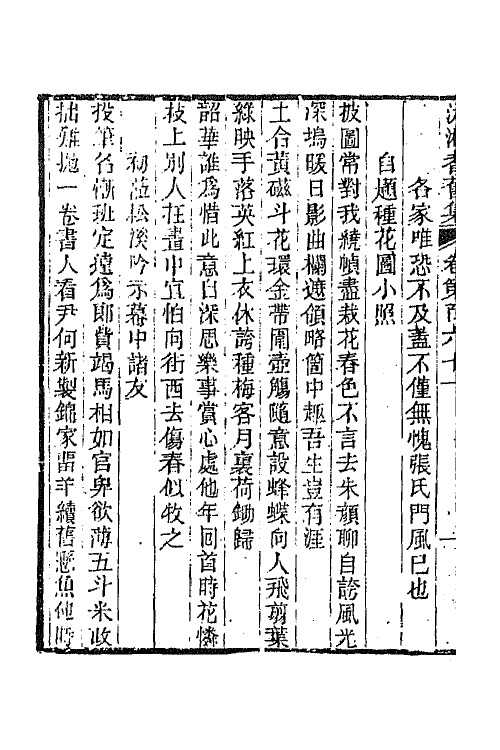 耆舊集　卷第百六十一
各家唯恐不及蓋不僅無愧張氏門風已也
自題種花圖小照
披圖常對我繞幀盡栽花春色不言去朱顏聊自誇風光
深塢暖日影曲欄遮領略箇中趣吾生豈有涯
土合黃磁斗花環金帶圍壺觴隨意設蜂蝶向人飛剪葉
綠映手落英紅上衣休誇種梅客月裏荷鋤歸
韶華誰爲惜此意自深思樂事賞心處他年回首時花憐
枝上別人在畫中宜怕向街西去傷春似牧之
初蒞松溪吟示幕中諸友
投筆名慚班定遠爲郎貲竭馬相如官卑欲薄五斗米政
拙難拋一卷書人看尹何新製錦家留羊續舊懸魚他時